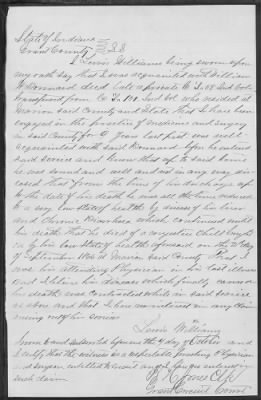 State of Indiana
Grant County } SS
I Lewis Williams being sworn upon
my oath say that I was acquainted with William
Bonnard decd late a private Co
transferred from Co Ind Vol who resided at
Marion said County and State that I have been
engaged in the practice of medicine and surgery
in said County for years last past was well
acquainted with said Bonnard before he entered
said service and know that up to said time
he was sound and well and not in any way dis
eased that from the time of his discharge up
to the date of his death he was all the time reduced
to a very low state of health by disease of his liver
and Chronic Diarrhoea which continued until
his death that he died of a congestive Chill brought
on by his low state of health aforesaid on the day
of September at Marion said County that I
was his attending Physician in his last illness
and I believe his diseases which finally caused
his death was contracted while in said service
as above and that I have no interest in any claim
arising out of his service
Lewis Williams
Sworn to and subscribed before me this 4 day of October and
I certify that the witness is a respectable practicing Physician
and Surgeon entitled to credit and I am not interested in
such claim
Jones Clk
Grant Circuit Court